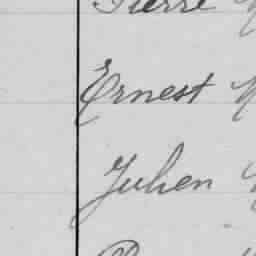 Pierre
Ernest
Julien